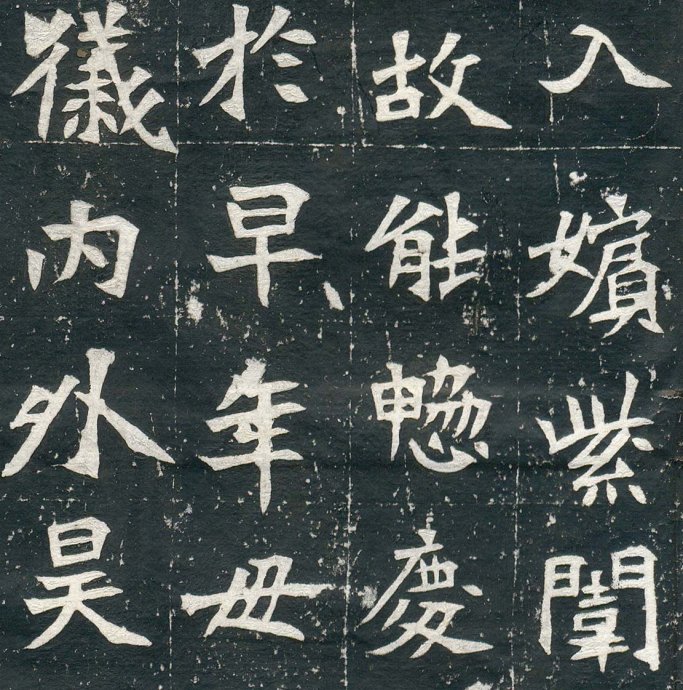 入嬪紫闈
故能總慶
於早年母
儀内外昊